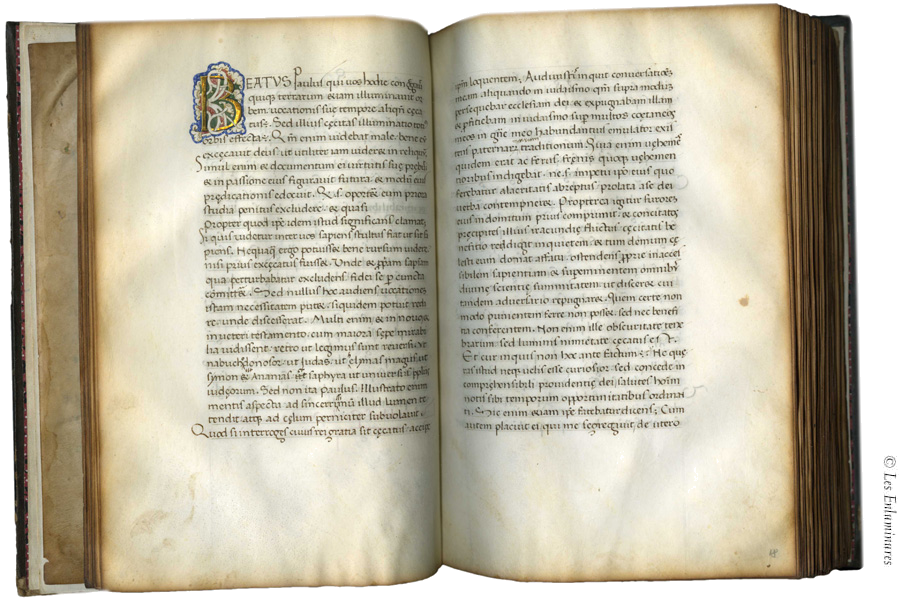 BEATVS Paulus qui vos hodie
quiq; terrarum & iam illuminauit or
bem: uocationis sue tempore aliqñ
Sed illius illuminatio
orbis effecta: Qm̃ enim uidebat male: bene
excecauit deus: ut utiliter iam uideret in
Simul enim & documentum ei uirtutis sue
& in passione eius figurauit futura: &
predicationis edocuit: oportet eum priora
studia penitus excludere: & quasi
Propter quod ip̃e idem istud significans clamat:
Si quis uidetur inter uos sapiens stultus fiat ut sit sa
piens. Nequaq̃ ergo potuisset bene rursum uidere:
nisi prius excecatus fuisset. Unde & sapiam
qua perturbabatur excludens: fidei se cuncta
Sed nullus hoc audiens uocationes
istam necessitatem putet: siquidem potuit redi
re: unde discesserat. Multi enim & in nouo &
in ueteri testamento: cum maiora sepe mirabi
lia uidissent: retro ut legimus sunt reuersi: ut
nabuchdonosor: ut Judas: ut elymas magus: ut
symon & Ananias: & saphyra ut uniuersus
iudeorum. Sed non ita paulus. Illustrato enim
mentis aspectu ad illud lumen te
tendit: atq; ad celum perniciter subuolauit.
Quod si interroges cuius rei gratia sit cecatus: accipe
ip̃m loquentem: Audiuistis inquit conuersationẽ
meam aliquando in iudaismo: qm̃ supra modũ
persequebar ecclesiam dei: & expugnabam illam:
& proficiebam in iudaismo sup multos coetaneos
meos in gñe meo: habundantius emulator exi
tens paternarũ traditionum. Quia enim uehemẽ
quidem erat ac ferus: frenis quoq; uehemen
tioribus indigebat: ne si impetu eius quo
ferebatur alacritatis abreptus: prolata a se dei
uerba contempneret. Propterea igitur furores
eius indomitum prius comprimit: & concitatos
precipites illius iracundie fluctus: cecitatis be
neficio reddidit inquietem: & tum demum ce
lesti eum domat affatu: ostendens in acces
sibilem sapientiam & supeminentem
diuine scientie summitatem: ut disceret cui
tandem aduersario repugnaret: Quem certe non
modo punientem ferre non posset: sed nec benefi
tia conferentem. Non enim ille obscuritate tene
brarum: sed luminis nimietate cecatus est.
Et cur inquis non hoc ante factum: Ne que
ras istud neq; uelis esse curiosior: sed concede in
comprehensibili prouidentie dei salutes homi
notis sibi temporum oportunitatibus ordinari
Sic enim & iam ip̃e fatebatur dicens: Cum
autem placuit ei qui me segregauit de utero
© Les Enluminures